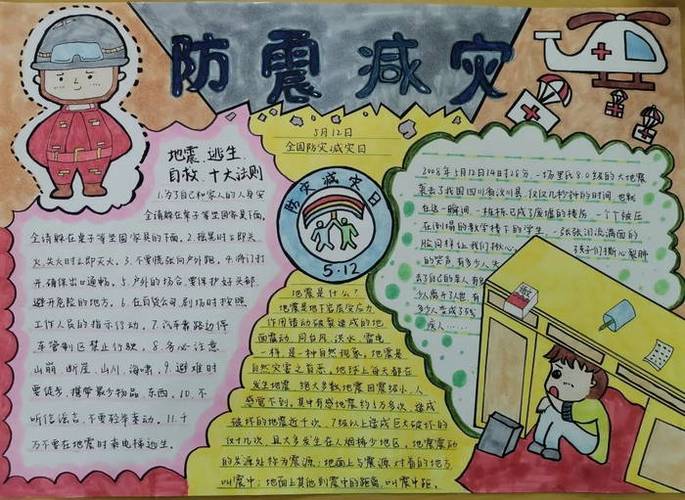 防震减灾
5月12日
全国防灾减灾日
地震逃生
自救十大法则
1.为了自己和家人的人身安
全请躲在桌子等坚固家具下面,
全请躲在桌子等坚固家具的下面。2.摇晃时立即灭
火,失火时立即灭火。3.不要慌张向户外跑。4.将门打
开,确保出口通畅。5.户外的场合,要保护好头部,
避开危险的地方。6.在百货公司、剧场时按照
工作人员的指示行动。7.汽车靠路边停
车管制区禁止行驶。8.务必注意
山崩、断崖、山川、海啸。9.避难时
要徒步,携带最少物品东西。10.不
听信谣言,不要轻举妄动。11.千
万不要在地震时乘电梯逃生。
防灾减灾日
5·12
地震是什么?
地震是地下岩层受应力
作用错动破裂造成的地
面震动。同台风、洪水、雷电
一样,是一种自然现象。地震是
自然灾害之首恶。地球上每天都在
发生地震,绝大多数地震因震级小,人
感觉不到。其中有感地震约5万多次,造成
破坏的地震近千次,7级以上造成巨大破坏的
仅十几次,且大多发生在人烟稀少地区。地震震动
的发源处称为震源;地面上与震源对着的地方
叫震中;地面上其他到震中的距离,叫震中距。
2008年5月12日14时28分,一场里氏8.0级的大地震
袭击了我国四川省汶川县,仅仅几秒钟的时间,也就
在这一瞬间,一栋栋已成了废墟的楼房,一个个被压
在倒塌的教学楼下的学生,一张张泪流满面的
脸同样让我们揪心。孩子们撕心裂肺
的哭
去了自己的亲人,有多
少人离于人世,有
多少人变成了残
疾人……